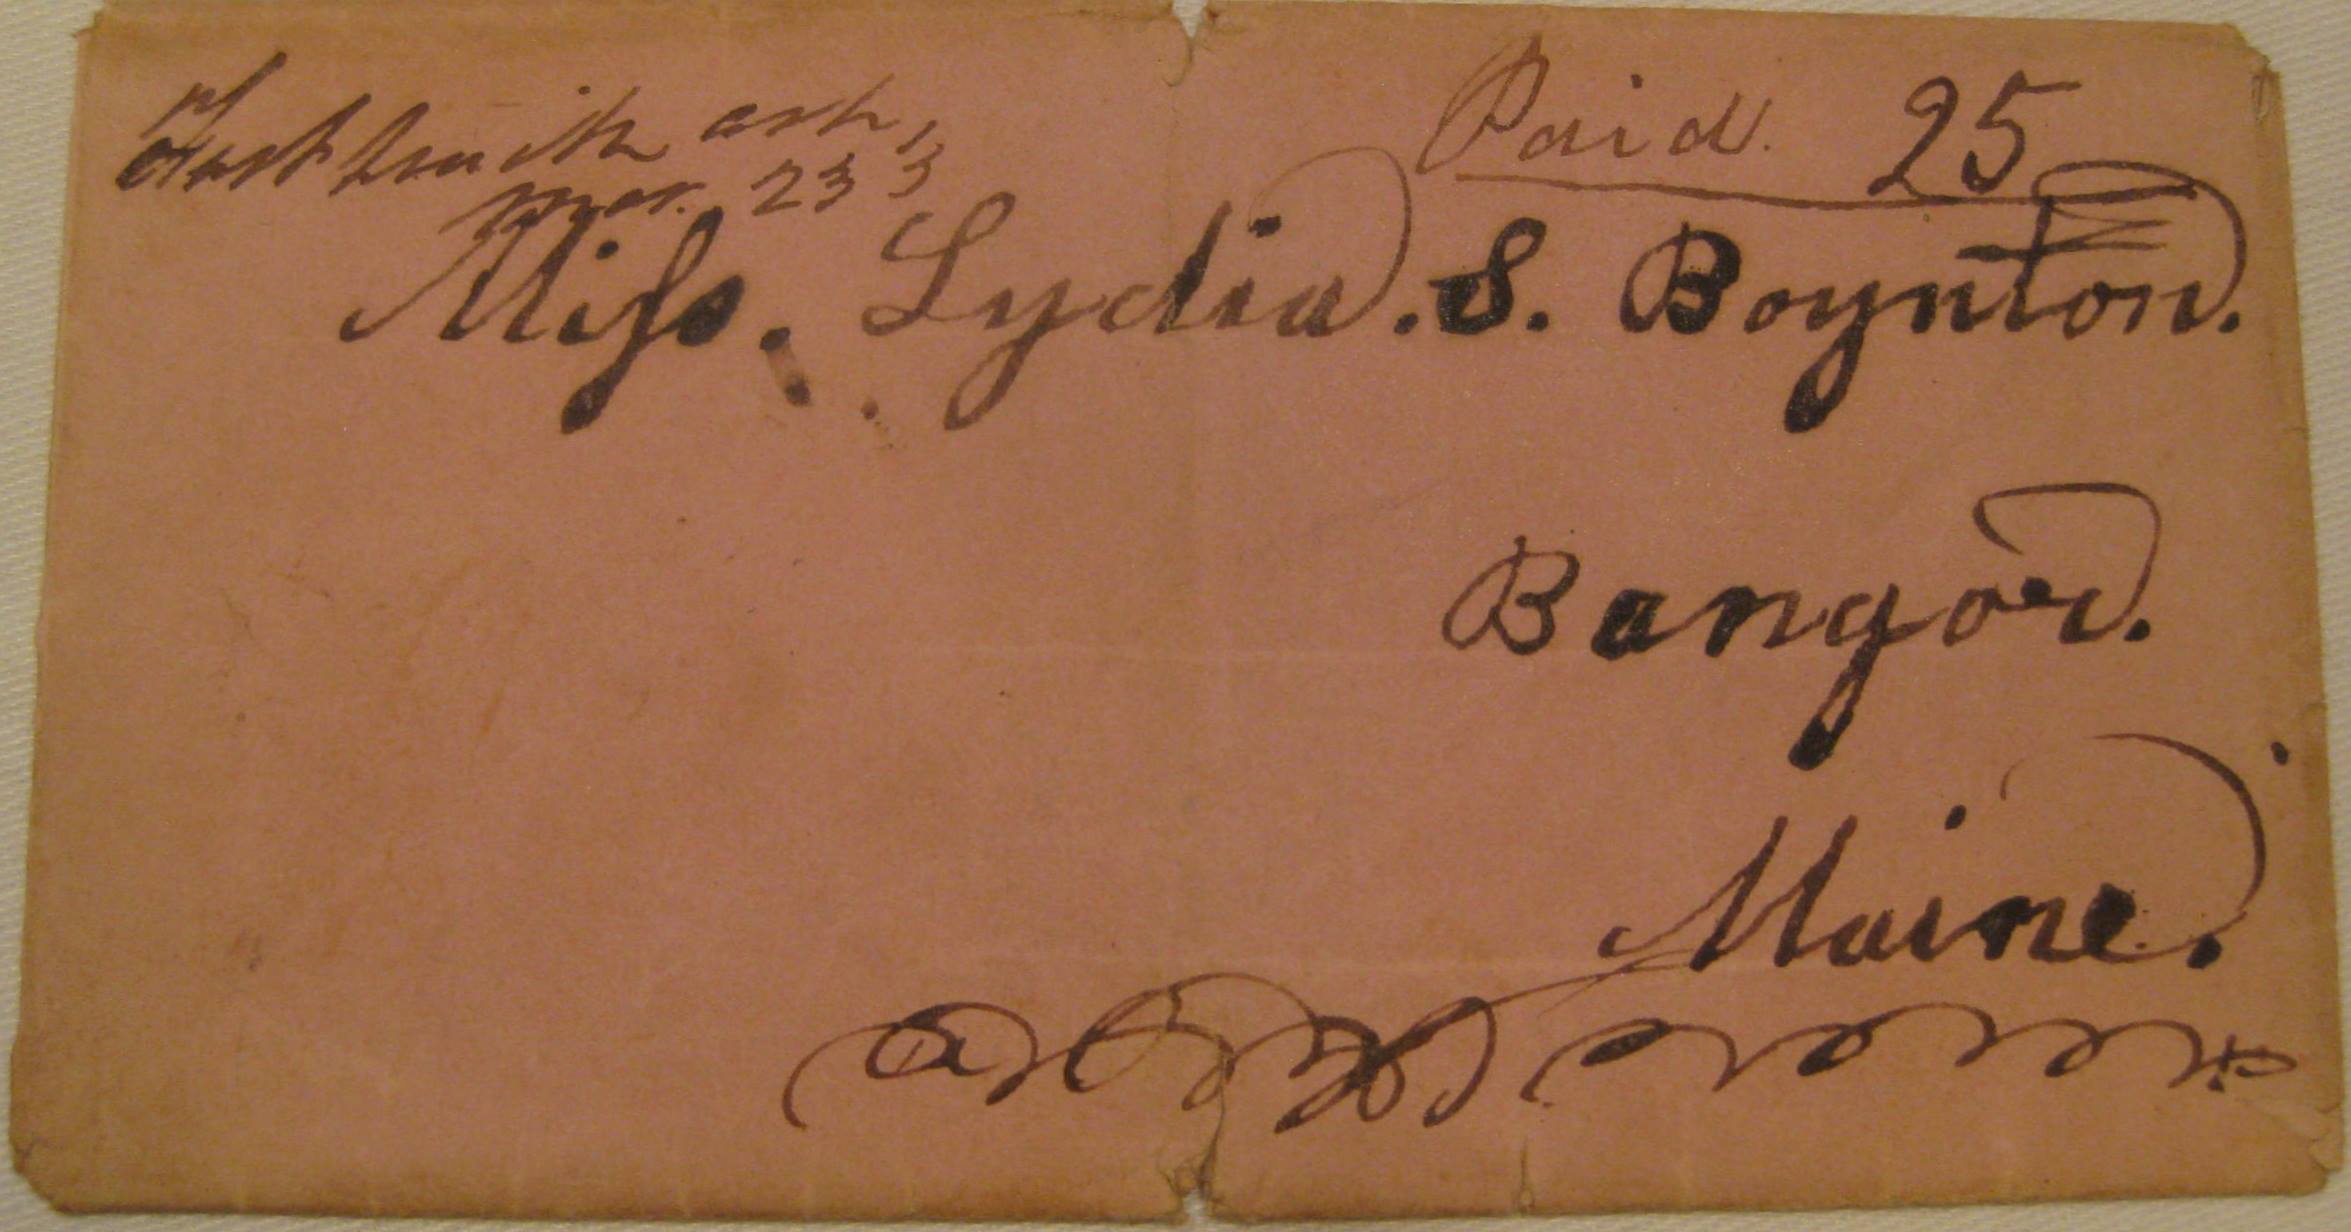 Fort Smith ark,
Mar. 23
Paid. 25
Miſs. Lydia. S. Boynton.
Bangor.
Maine.